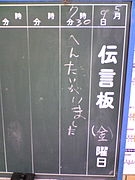 5月9日
伝言板
(金)曜日
7時30分
へんたいがいました
時
分
時
分